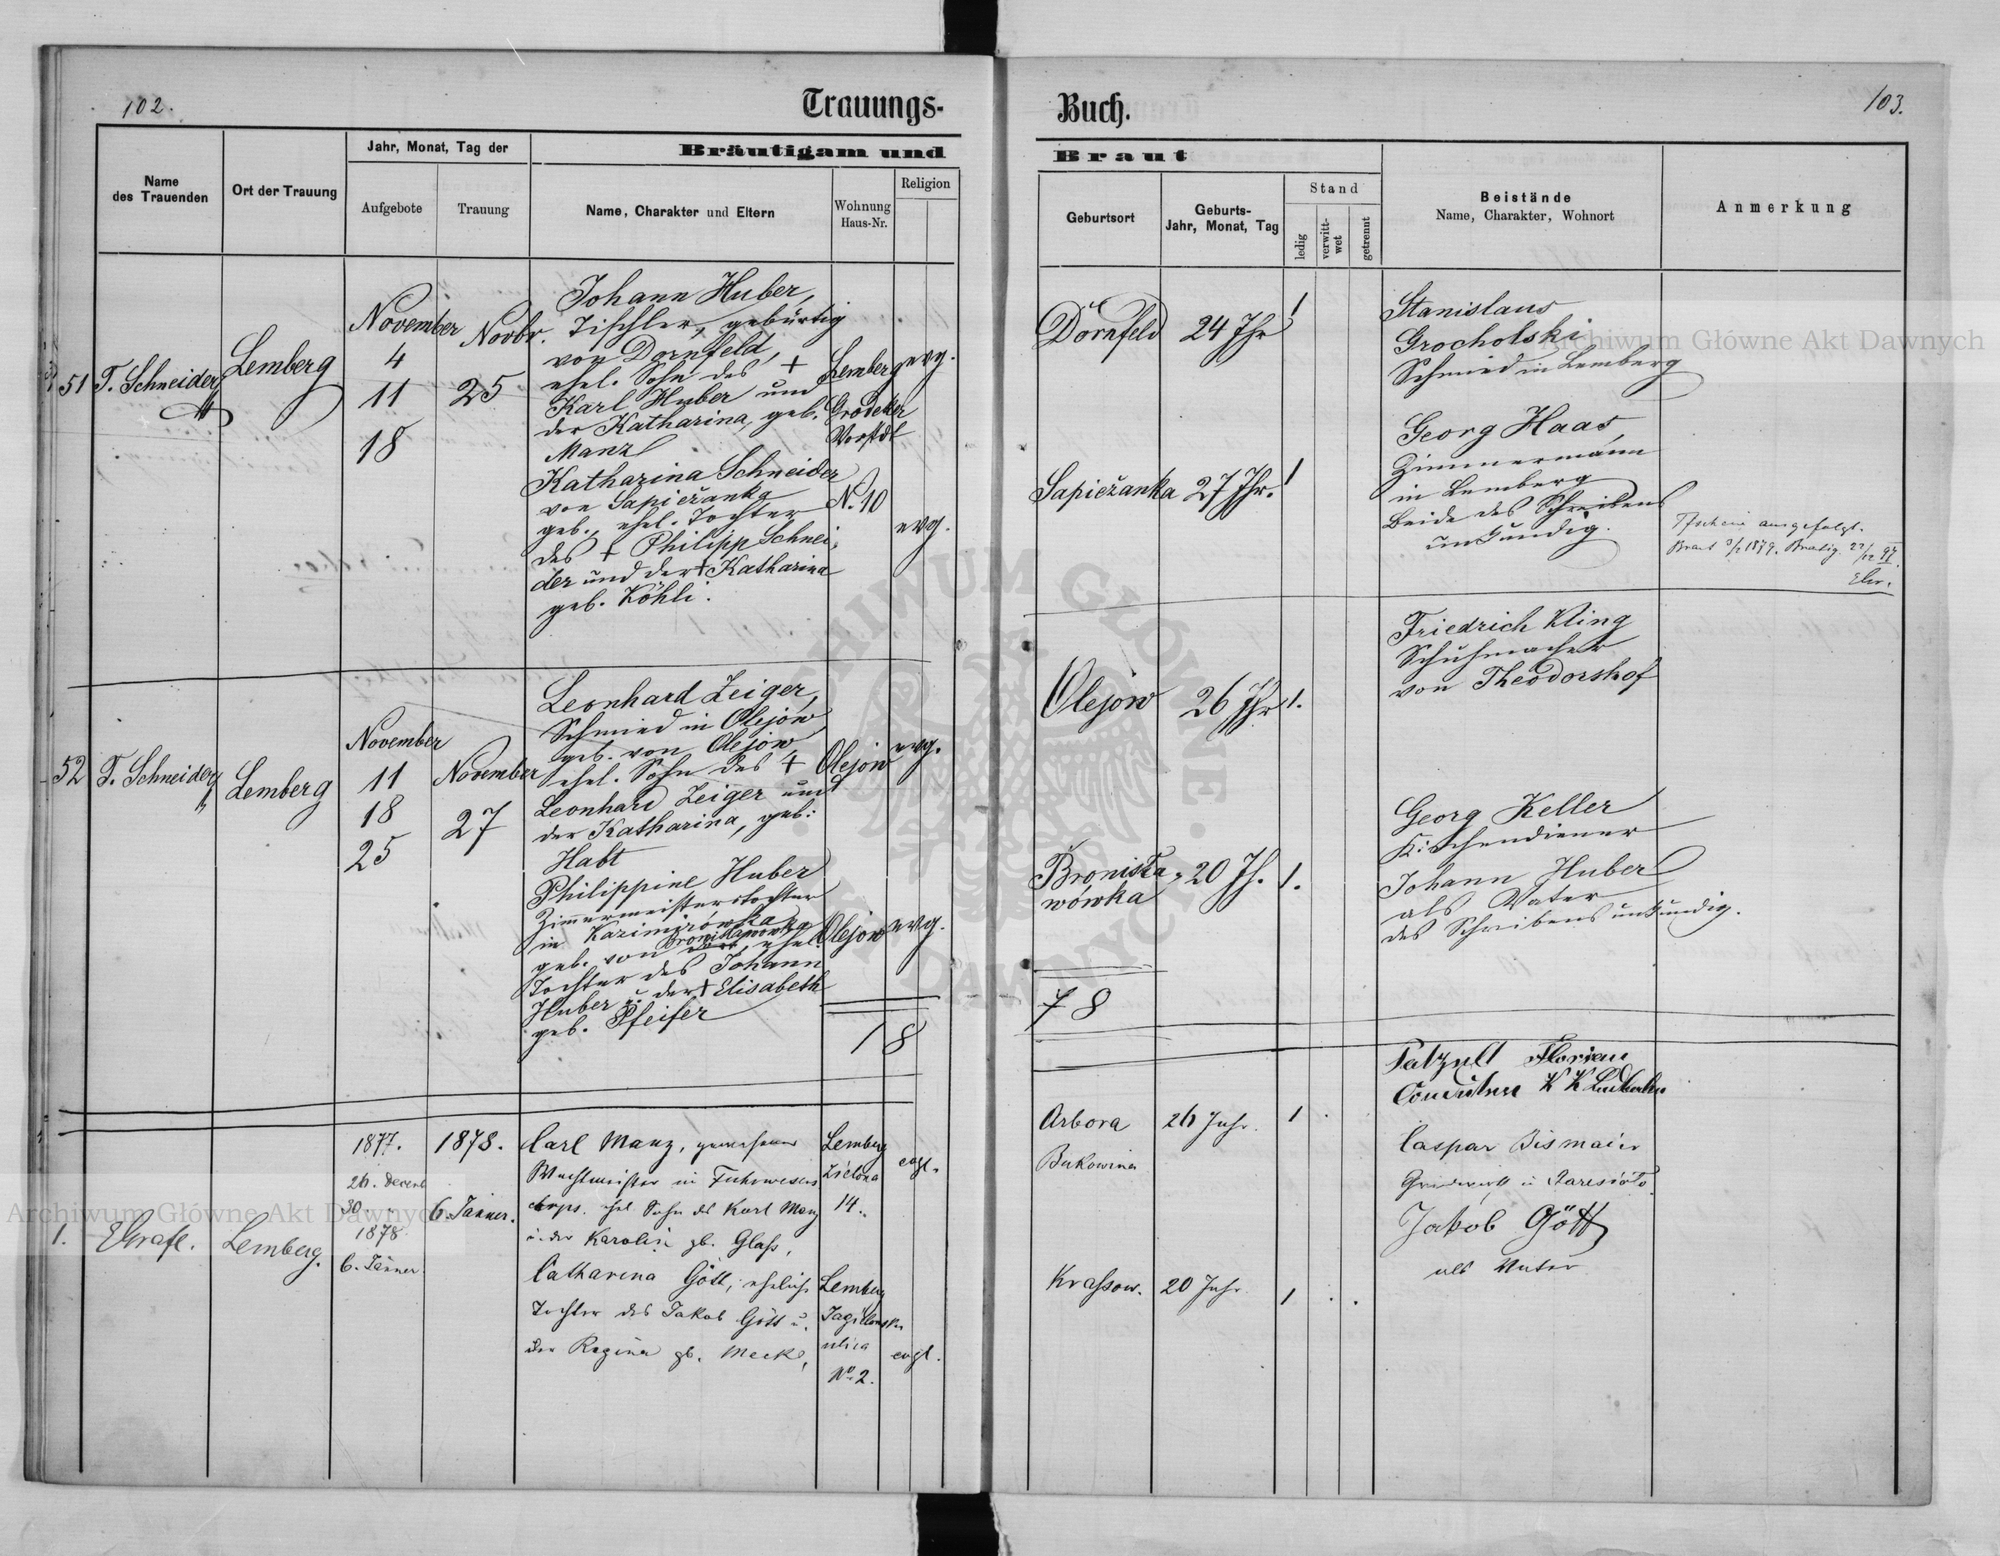 102.
Trauungs-
Bräutigam und
Name
des Trauenden
Ort der Trauung
Jahr, Monat, Tag der
Aufgebote
Trauung
Name, Charakter und Eltern
Wohnung
Haus-Nr.
Religion
51
T. Schneider
Lemberg
November
4
11
18
Novbr.
25
Johann Huber,
Tischler, gebürtig
von Dornfeld,
ehel. Sohn des +
Karl Huber und
der Katharina, geb.
Manz
Lemberg
Grodeker
Vorstdt
N. 10
evg.
Katharina Schneider
von Sapiežanka
geb., ehel. Tochter
des + Philipp Schnei-
der und der + Katharina
geb. Köhli.
evg.
52
T. Schneider
Lemberg
November
11
18
25
November
27
Leonhard Zeiger,
Schmied in Olejów
geb. von Olejow
ehel. Sohn des +
Leonhard Zeiger und
der Katharina, geb:
Habt
Olejów
evg.
Philippine Huber
Zimmermeisterstochter
in Kazimirówka
geb. von Bronisławówka, ehel.
Tochter des Johann
Huber u. der + Elisabeth
geb. Pfeifer
Olejow
evg.
18
1.
Lemberg.
1877.
26. Decemb
30. "
1878
6. Jänner.
1878.
6. Jänner.
Carl Manz, gewesener
Wachtmeister im Fuhrwesens
corps. ehl. Sohn ds Karl Manz
u. der Karolin gb. Glaß,
Lemberg
Zielona
14.
evgl.
Catharina Gött, eheliche
Tochter des Jakob Gött u.
der Regina gb. Meck,
Lemberg
Jagiellonska
ulica
No 2.
evgl.
Buch.
103.
Braut
Geburtsort
Geburts-
Jahr, Monat, Tag
Stand
ledig
verwitt-
wet
getrennt
Beistände
Name, Charakter, Wohnort
Anmerkung
Dornfeld
24 Jhr
1
Stanislaus
Grocholski
Schmied in Lemberg
Sapiežanka
27 Jhr.
1
Georg Haas,
Zimmermann
in Lemberg
Beide des Schreibens
unkundig.
Tschein ausgefolgt.
Olejow
26 Jhr
1.
Friedrich Kling
Schuhmacher
von Theodorshof
Bronisła-
wówka
20 Jh.
1.
Georg Keller
Kirchendiener
Johann Huber
als Vater
des Schreibens unkundig.
78
Arbora
Bukowina
26 Jahr.
1
Patzult Florian
Caspar Bismaier
Krassow.
20 Jahr.
1
Jakob Gött
als Vater
Archiwum Główne Akt Dawnych
Archiwum Główne Akt Dawnych
ARCHIWUM GŁÓWNE · AKT DAWNYCH ·